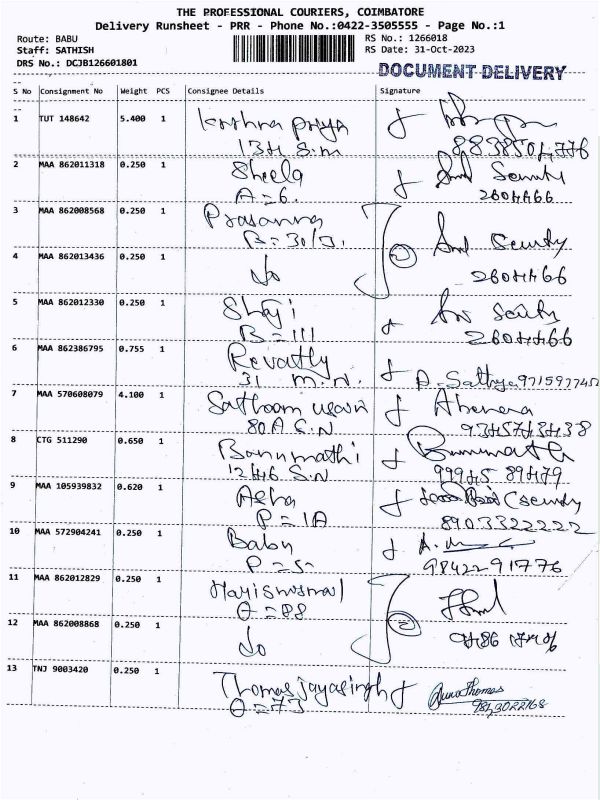 THE PROFESSIONAL COURIERS, COIMBATORE
Delivery Runsheet - PRR - Phone No.:0422-3505555 - Page No.:1
Route: BABU
RS No.: 1266018
Staff: SATHISH
RS Date: 31-Oct-2023
DRS No.: DCJB126601801
DOCUMENT DELIVERY
S No Consignment No Weight PCS Consignee Details Signature
1 TUT 148642 5.400 1 Krishna priya
134 S.M 8838504776
2 MAA 862011318 0.250 1 Sheela Security
A=6. 2604466
3 MAA 862008568 0.250 1 Prasanna Security
B=30/D.
4 MAA 862013436 0.250 1 Do 2604466
5 MAA 862012330 0.250 1 Shaji
B=111 2604466
6 MAA 862386795 0.755 1 Revathy
31 M.N. P. Sathya 9715977452
7 MAA 570608079 4.100 1 Sathoam
80A S.N 9345743438
8 CTG 511290 0.650 1 Banumathi Banumathi
1246 S.N 99945 89479
9 MAA 105939832 0.620 1 Asha Security
P=1A 8903322222
10 MAA 572904241 0.250 1 Babu
P=5 98422 91776
11 MAA 862012829 0.250 1
O=88
12 MAA 862008868 0.250 1 Do
13 TNJ 9003420 0.250 1 Thomas jayasingh Thomas
O=73